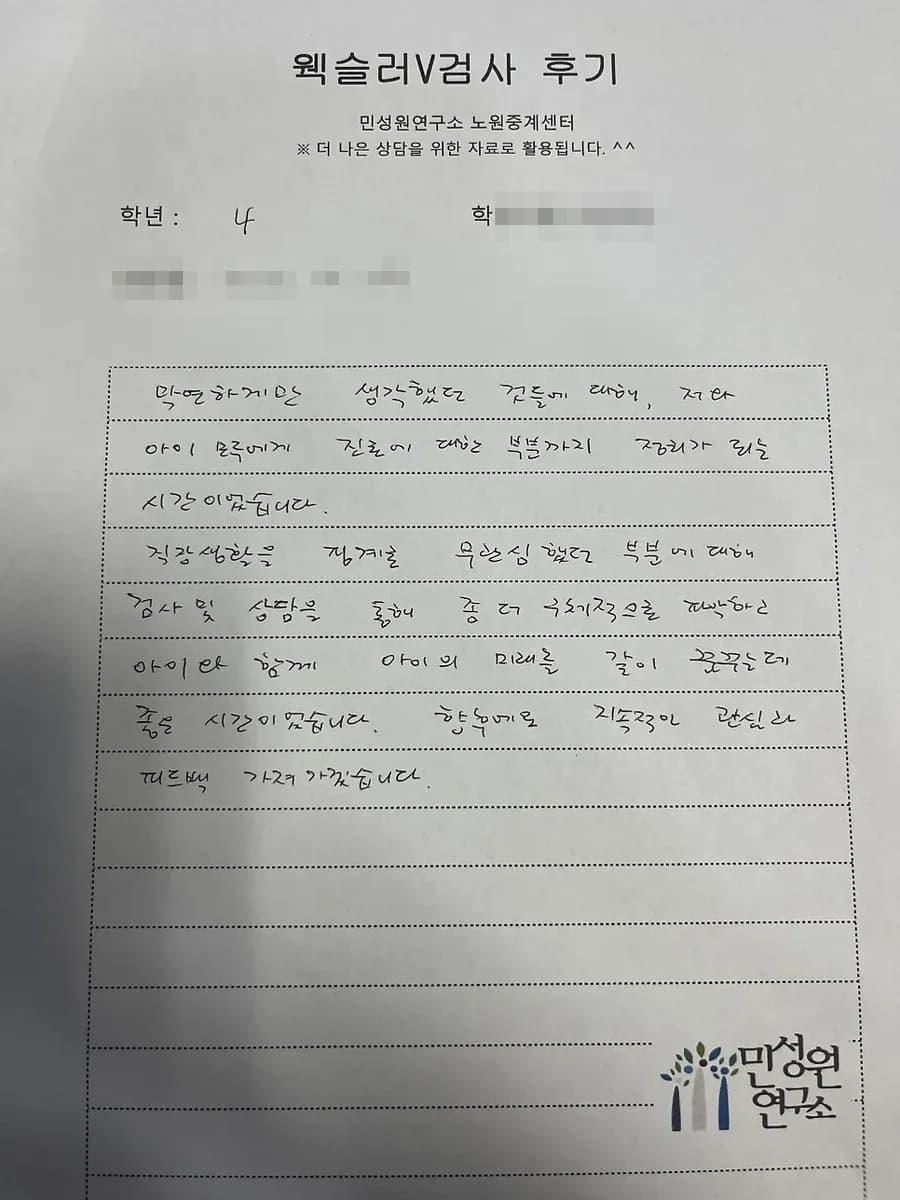 웩슬러V검사 후기
민성원연구소 노원중계센터
※ 더 나은 상담을 위한 자료로 활용됩니다. ^^
학년 : 4 학
막연하게만 생각했던 것들에 대해, 저와
아이 모두에게 진로에 대한 부분까지 정리가 되는
시간이었습니다.
직장생활을 핑계로 무관심했던 부분에 대해
검사 및 상담을 통해 좀 더 구체적으로 파악하고
아이와 함께 아이의 미래를 같이 꿈꾸는데
좋은 시간이었습니다. 향후에도 지속적인 관심과
피드백 가져가겠습니다.
민성원
연구소